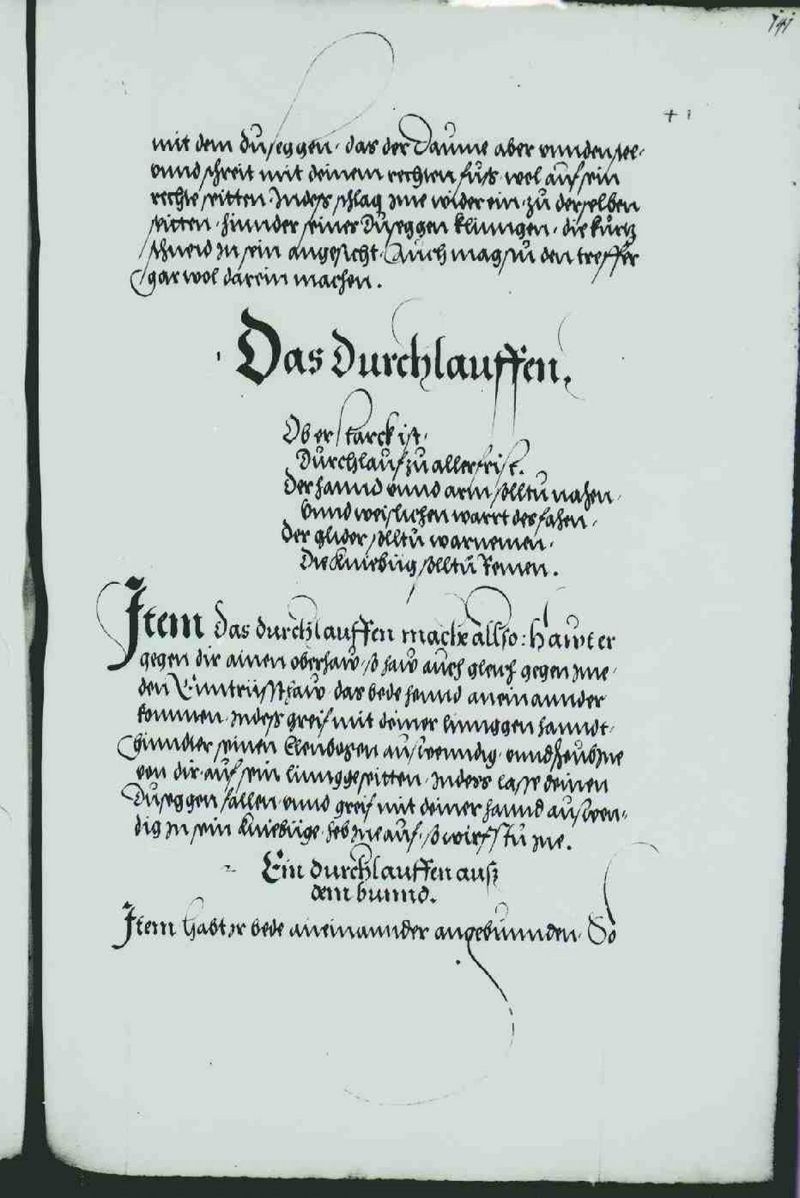 mit dem duseggen · das der Daume aber unnden stee ·
unnd schreit mit deinem rechten fuß · wol auf sein
rechte seitten · Indess schlag Ime wider ein · zu derselben
seitten · hinnder seiner Duseggen klinngen · die kurtz
schneid In sein angesicht · Auch magstu den treffer
gar wol darein machen .
Das Durchlauffen .
Ob er starck ist ·
Durchlauf zu aller frist .
Der hannd unnd arm solltu nahen ·
Unnd weislichen warrt des fahen ·
Der glider solltu warnemen ·
Die kniebüg solltu Remen .
Item das durchlauffen mach allso : hawt er
gegen dir ainen oberhaw · so haw auch gleich gegen Ime ·
den Enntrüsthaw das bede hennd aneinannder
kommen · Indess greif mit deiner linnggen hanndt ·
hinnder seinen Elenbogen auswenndig · unnd heub Ine
von dir · auf sein lingge seitten · Indess lasse deinen
Duseggen fallen · unnd greif mit deiner hannd auswen=
dig In sein kniebüge · heb Ine auf · so wirfstu Ine .
Ein durchlauffen auß
dem bunnd .
Item habt Ir bede aneinannder angebunnden · So